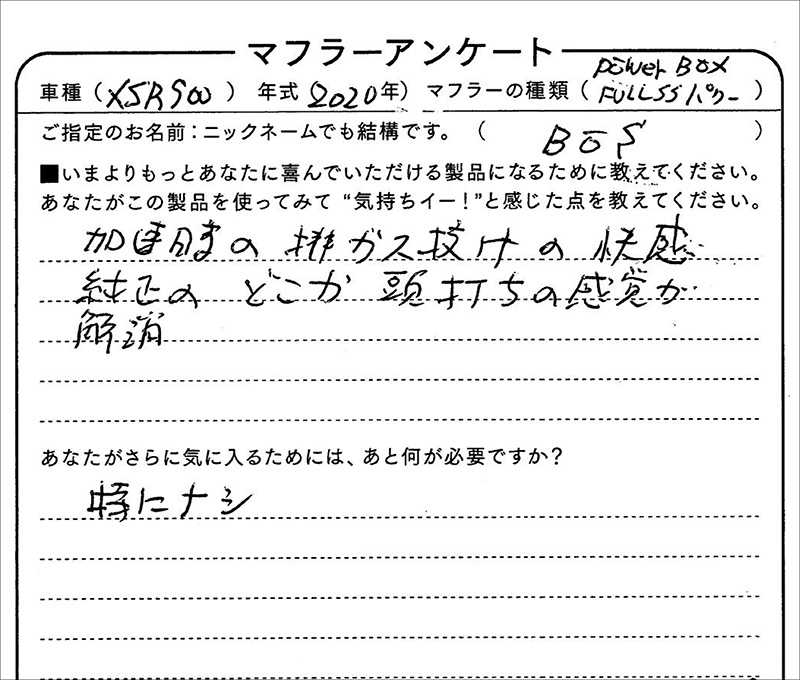 マフラーアンケート
車種（XSR900） 年式（2020年） マフラーの種類（POWER BOX FULL SS パワー）
ご指定のお名前：ニックネームでも結構です。（ BOS ）
■いまよりもっとあなたに喜んでいただける製品になるために教えてください。
あなたがこの製品を使ってみて “気持ちイー！”と感じた点を教えてください。
加速時の排ガス抜けの快感
純正の どこか 頭打ちの感覚が
解消
あなたがさらに気に入るためには、あと何が必要ですか？
特にナシ